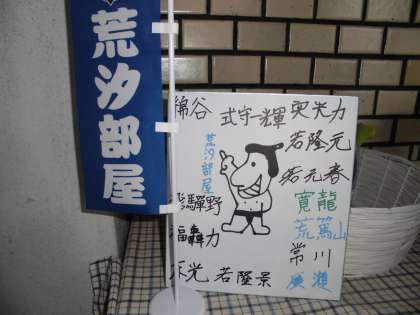 荒汐部屋
綿谷
式守一輝
突光力
若隆元
荒汐部屋
若元春
寛龍
飛驒野
荒篤山
福轟力
常川
若隆景
廣瀬